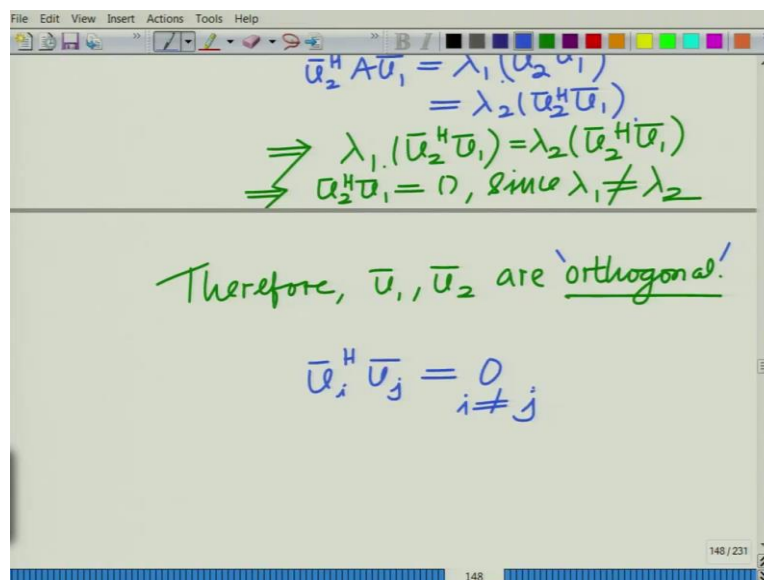 File Edit View Insert Actions Tools Help
» » B I
ū₂ᴴ A ū₁ = λ₁ (ū₂ᴴ ū₁)
= λ₂ (ū₂ᴴ ū₁).
⇒ λ₁. (ū₂ᴴ ū₁) = λ₂ (ū₂ᴴ ū₁)
⇒ ū₂ᴴ ū₁ = 0, since λ₁ ≠ λ₂
Therefore, ū₁, ū₂ are 'orthogonal.'
ūᵢᴴ ūⱼ = 0
i ≠ j
148 / 231
148